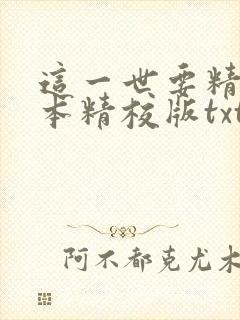 這一世要精
本精校版txt
阿不都克尤木